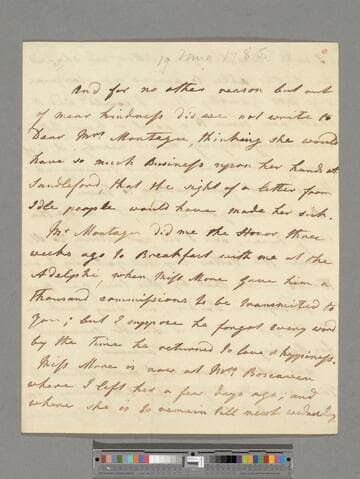 19 June 1785
And for no other reason but out
of mear kindness did we not write to
Dear Mrs Montagu, thinking she would
have so much Business upon her hands at
Sandleford, that the sight of a letter from
Idle people would have made her sick.
Mr Montagu did me the Honor three
weeks ago to Breakfast with me at the
Adelphi, when Miss More gave him a
thousand commissions to be transmitted to
you; but I suppose he forgot every word
by the Time he returned to love & happiness.
Miss More is now at Mrs Boscawen
where I left her a few days ago, and
where she is to remain till next wednesday